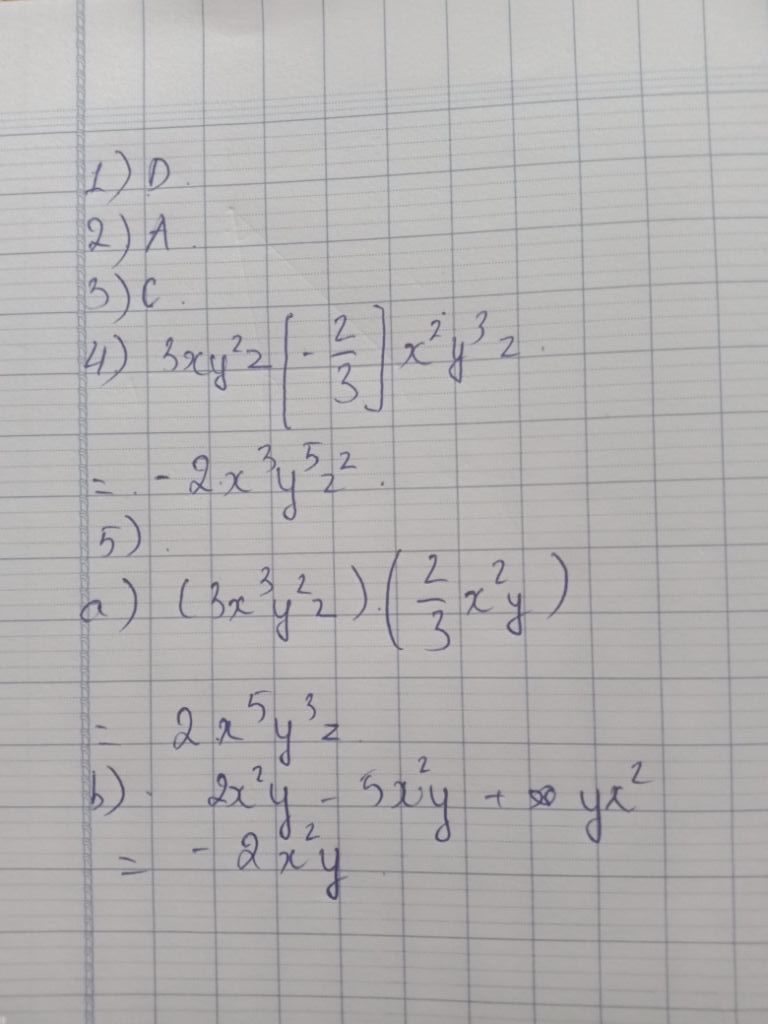 1) D.
2) A.
3) C.
4) 3xy²z [-2/3] x²y³z.
= -2x³y⁵z².
5).
a) (3x³y²z).(2/3 x²y)
= 2x⁵y³z
b). 2x²y - 5x²y + yx²
= -2x²y